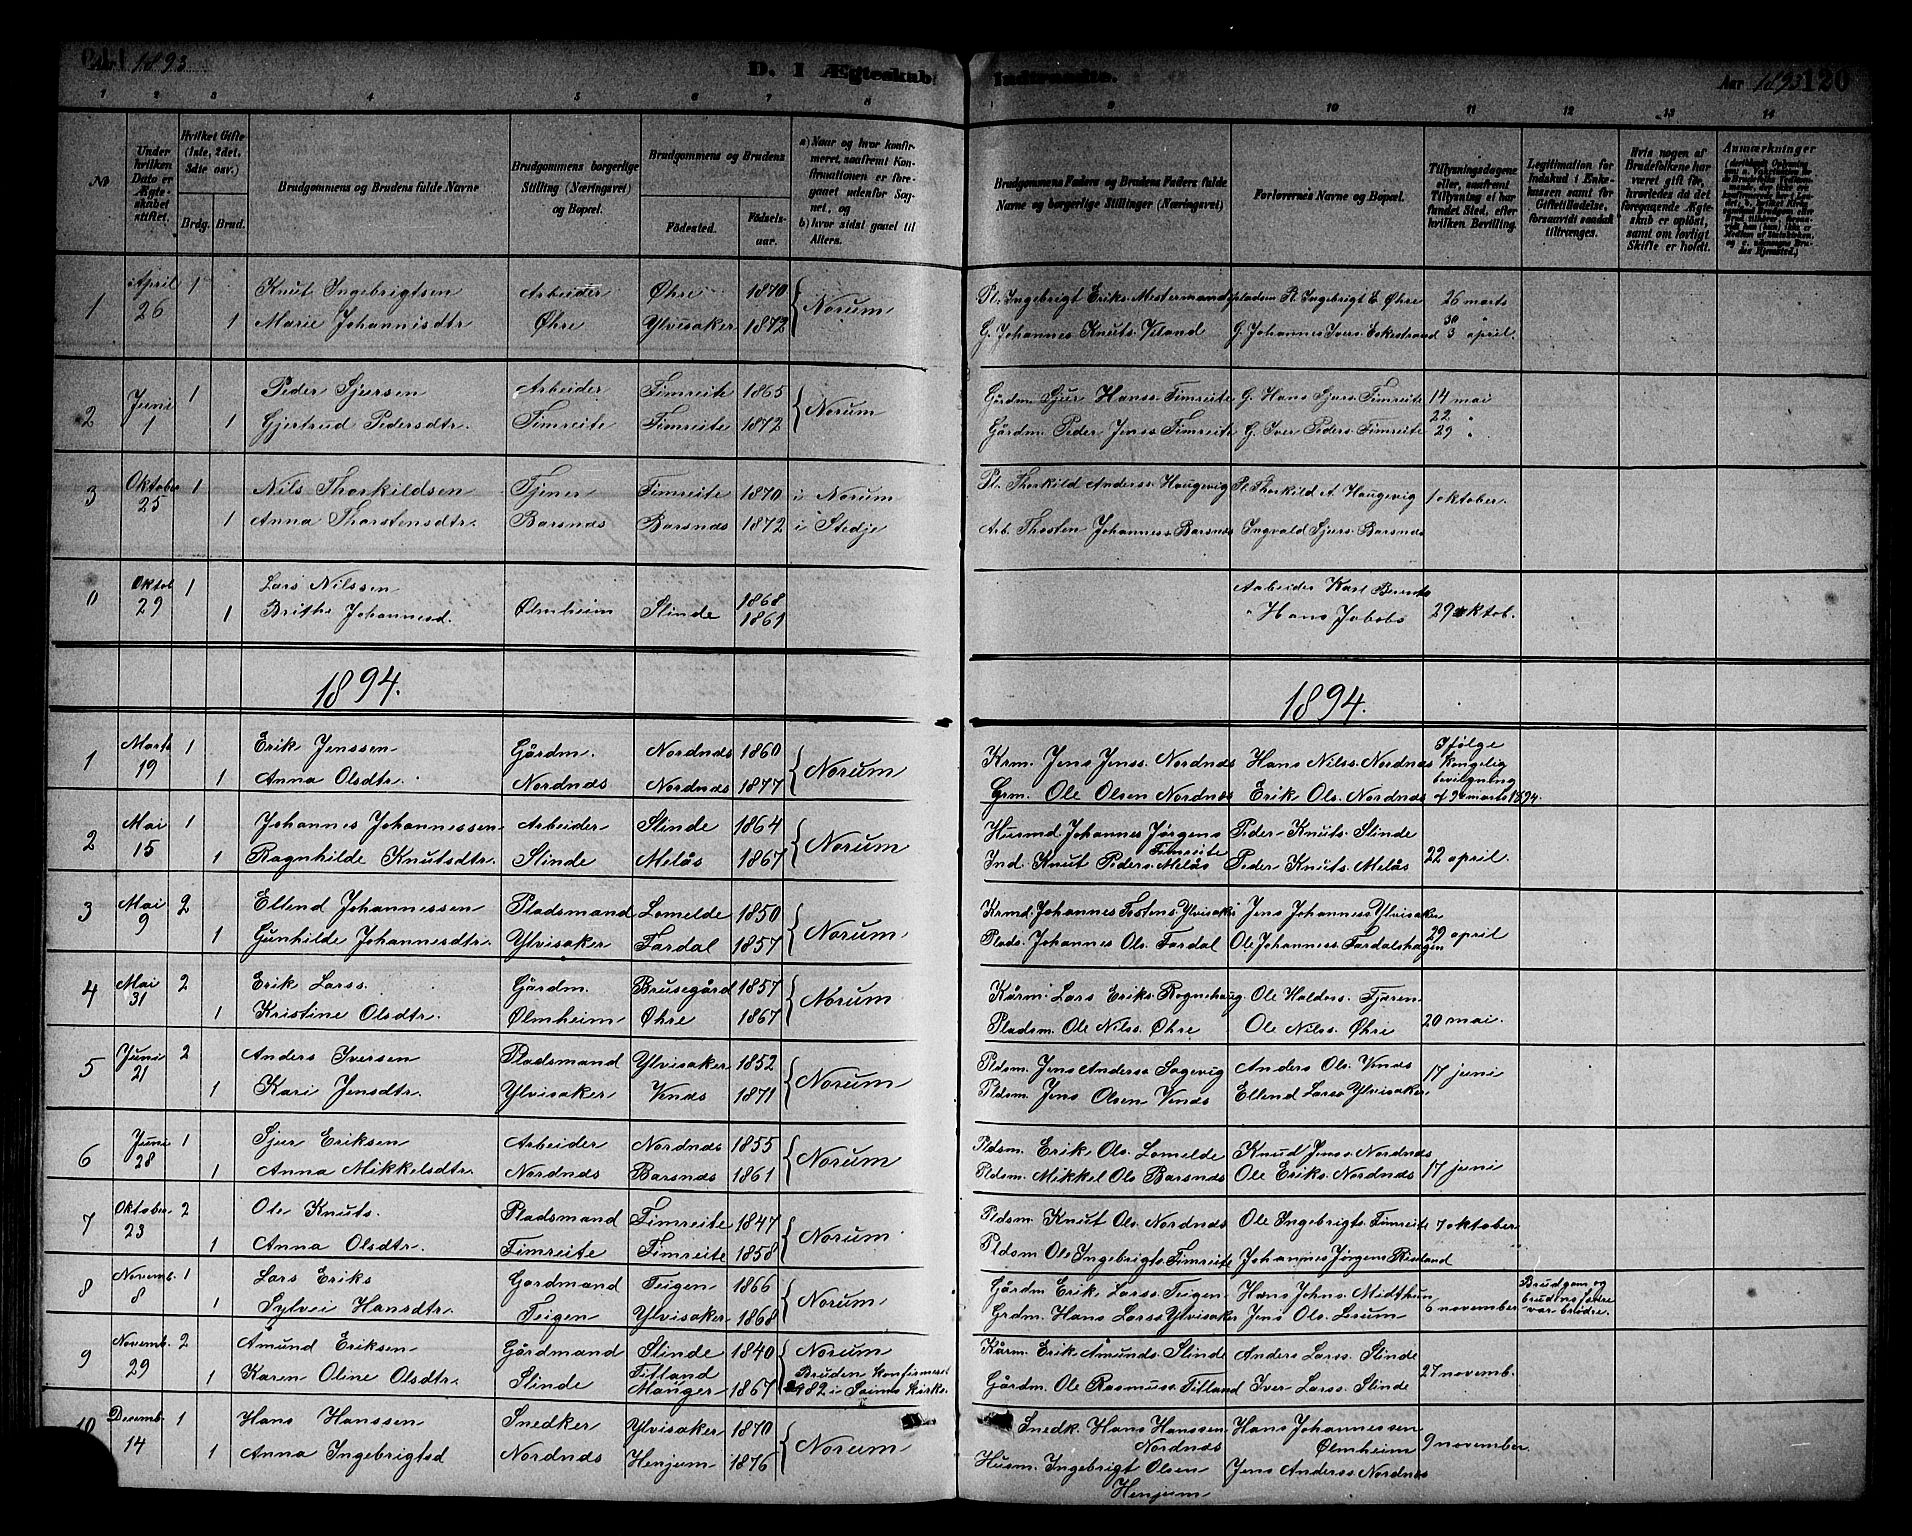 Aar 1893
D. I Ægteskab Indtraadte.
Aar 1893 120
1 2 3 4 5 6 7 8 9 10 11 12 13 14
No
Under hvilken Dato er Ægteskabet stiftet.
Hvilket Gifte (1ste, 2det, 3die osv.)
Brdg. Brud.
Brudgommens og Brudens fulde Navne
Brudgommens borgerlige Stilling (Næringsvei) og Bopæl.
Brudgommens og Brudens
Fødested. Fødselsaar.
a) Naar og hvor konfirmeret, saafremt Konfirmationen er foregaaet udenfor Sognet, og
b) hvor sidst gaaet til Alters.
Brudgommens Faders og Brudens Faders fulde Navne og borgerlige Stillinger (Næringsvei)
Forlovernes Navne og Bopæl.
Tillysningsdagene eller, saafremt Tillysning ei har fundet Sted, efter hvilken Bevilling.
Legitimation for Indskud i Enkekassen samt for Giftetilladelse, forsaavidt saadan tiltrænges.
Hvis nogen af Brudefolkene har været gift før, hvorledes da det foregaaende Ægteskab er opløst, samt om lovligt Skifte er holdt.
Anmærkninger
1 April 26 1 Knut Ingebrigtsen Arbeider Øhre 1870 Norum Pl. Ingebrigt Eriks. Mestermandspladsen Pl. Ingebrigt E. Øhre 26 marts
1 Marie Johannisdtr Øhre Ylvisaker 1872 G. Johannes Knuts. Veland G. Johannes Ivers. Eskestrand 30 " 3 april.
2 Juni 1 1 Peder Sjursen Arbeider Fimreite 1865 Norum Gårdm. Sjur Hanss. Fimreite G. Hans Sjurs. Fimreite 14 mai
1 Gjertrud Pedersdtr. Fimreite Fimreite 1872 Gårdm. Peder Jenss. Fimreite G. Iver Peders. Fimreite 22 " 29 "
3 Oktober 25 1 Nils Thorkildsen Tjener Fimreite 1870 i Norum Pl. Thorkild Anderss. Haugevig Pl. Thorkild A. Haugevig 1 oktober.
1 Anna Thorstensdtr. Barsnds Barsnds 1872 i Stedje Arb. Thosten Johanness. Barsnds Ingvald Sjurs. Barsnds
0 Oktob 29 1 Lars Nilssen 1868 Arbeider Karl Bernts
1 Brithe Johannesd. Ølmheim Slinde 1861 " Hans Jakobs 29 oktob.
1894. 1894.
1 Marts 19 1 Erik Jenssen Gårdm. Nordnds 1860 Norum Krm. Jens Jenss. Nordnds Hans Nilss. Nordnds Ifølge kongelig bevilgning
1 Anna Olsdtr. Nordnds Nordnds 1877 Grm. Ole Olsen Nordnds Erik Ols. Nordnds af 9 marts 1894.
2 Mai 15 1 Johannes Johannessen Arbeider Slinde 1864 Norum Husmd Johannes Jørgens Fimreite Peder Knuts. Slinde
1 Ragnhilde Knutsdtr. Slinde Melås 1867 Ind. Knut Peders. Melås Peder Knuts. Melås 22 april.
3 Mai 9 2 Ellend Johannessen Pladsmand Lomelde 1850 Norum Krmd. Johannes Tostens. Ylvisaker Jens Johanness. Ylvisaker
1 Gunhilde Johannesdtr. Ylvisaker Fardal 1857 Plads. Johannes Ols. Fardal Ole Johanness. Fardalshagen 29 april
4 Mai 31 2 Erik Larss. Gårdm. Brusegård 1857 Norum Kårm. Lars Eriks. Rognehaug Ole Haldors. Tjæren
1 Kristine Olsdtr. Ølmheim Øhre 1867 Pladsm. Ole Nilss. Øhre Ole Nilss. Øhri 20 mai.
5 Juni 21 2 Anders Iversen Pladsmand Ylvisaker 1852 Norum Pldsm. Jens Anderss. Sagevig Anders Ols. Vends 17 juni
1 Kari Jensdtr. Ylvisaker Vends 1871 Pldsm. Jens Olsen Vends Ellend Larss. Ylvisaker.
6 Juni 28 1 Sjur Eriksen Arbeider Nordnds 1855 Norum Pldsm. Erik Ols. Lomelde Knud Jens. Nordnds
1 Anna Mikkelsdtr. Nordnds Barsnds 1861 Pldsm. Mikkel Ols Barsnds Ole Eriks. Nordnds 17 juni
7 Oktober 23 2 Ole Knuts. Pladsmand Fimreite 1847 Norum Pldsm. Knut Ols. Nordnds Ole Ingebrigts. Fimreite 7 oktober
1 Anna Olsdtr. Fimreite Fimreite 1858 Pldsm Ole Ingebrigts. Fimreite Johannes Jørgens Risland
8 Novemb. 8 1 Lars Eriks Gardmand Teigen 1866 Norum Gårdm Erik Larss. Teigen Hans Johns. Midthun Brudgom og brudens fædre var brødre.
1 Sylvei Hansdtr. Teigen Ylvisaker 1868 Grdm. Hans Larss Ylvisaker Jens Ols. Lerum 6 november
9 Novemb. 29 2 Amund Eriksen Gårdmand Slinde 1840 Norum Kårm. Erik Amunds. Slinde Anders Larss. Slinde
1 Karen Oline Olsdtr. Slinde Titland Manger 1867 Bruden konfirmeret 1882 i Sæims kirke. Gårdm. Ole Rasmuss. Titland Iver Larss. Slinde 27 novemb.
10 Decemb. 14 1 Hans Hanssen Snedker Ylvisaker 1870 Norum Snedk. Hans Hanssen Nordnds Hans Johannessen Ølmheim
1 Anna Ingebrigtsd Nordnds Henjum 1876 Husm. Ingebrigt Olsen Henjum Jens Anderss. Nordnds 9 november